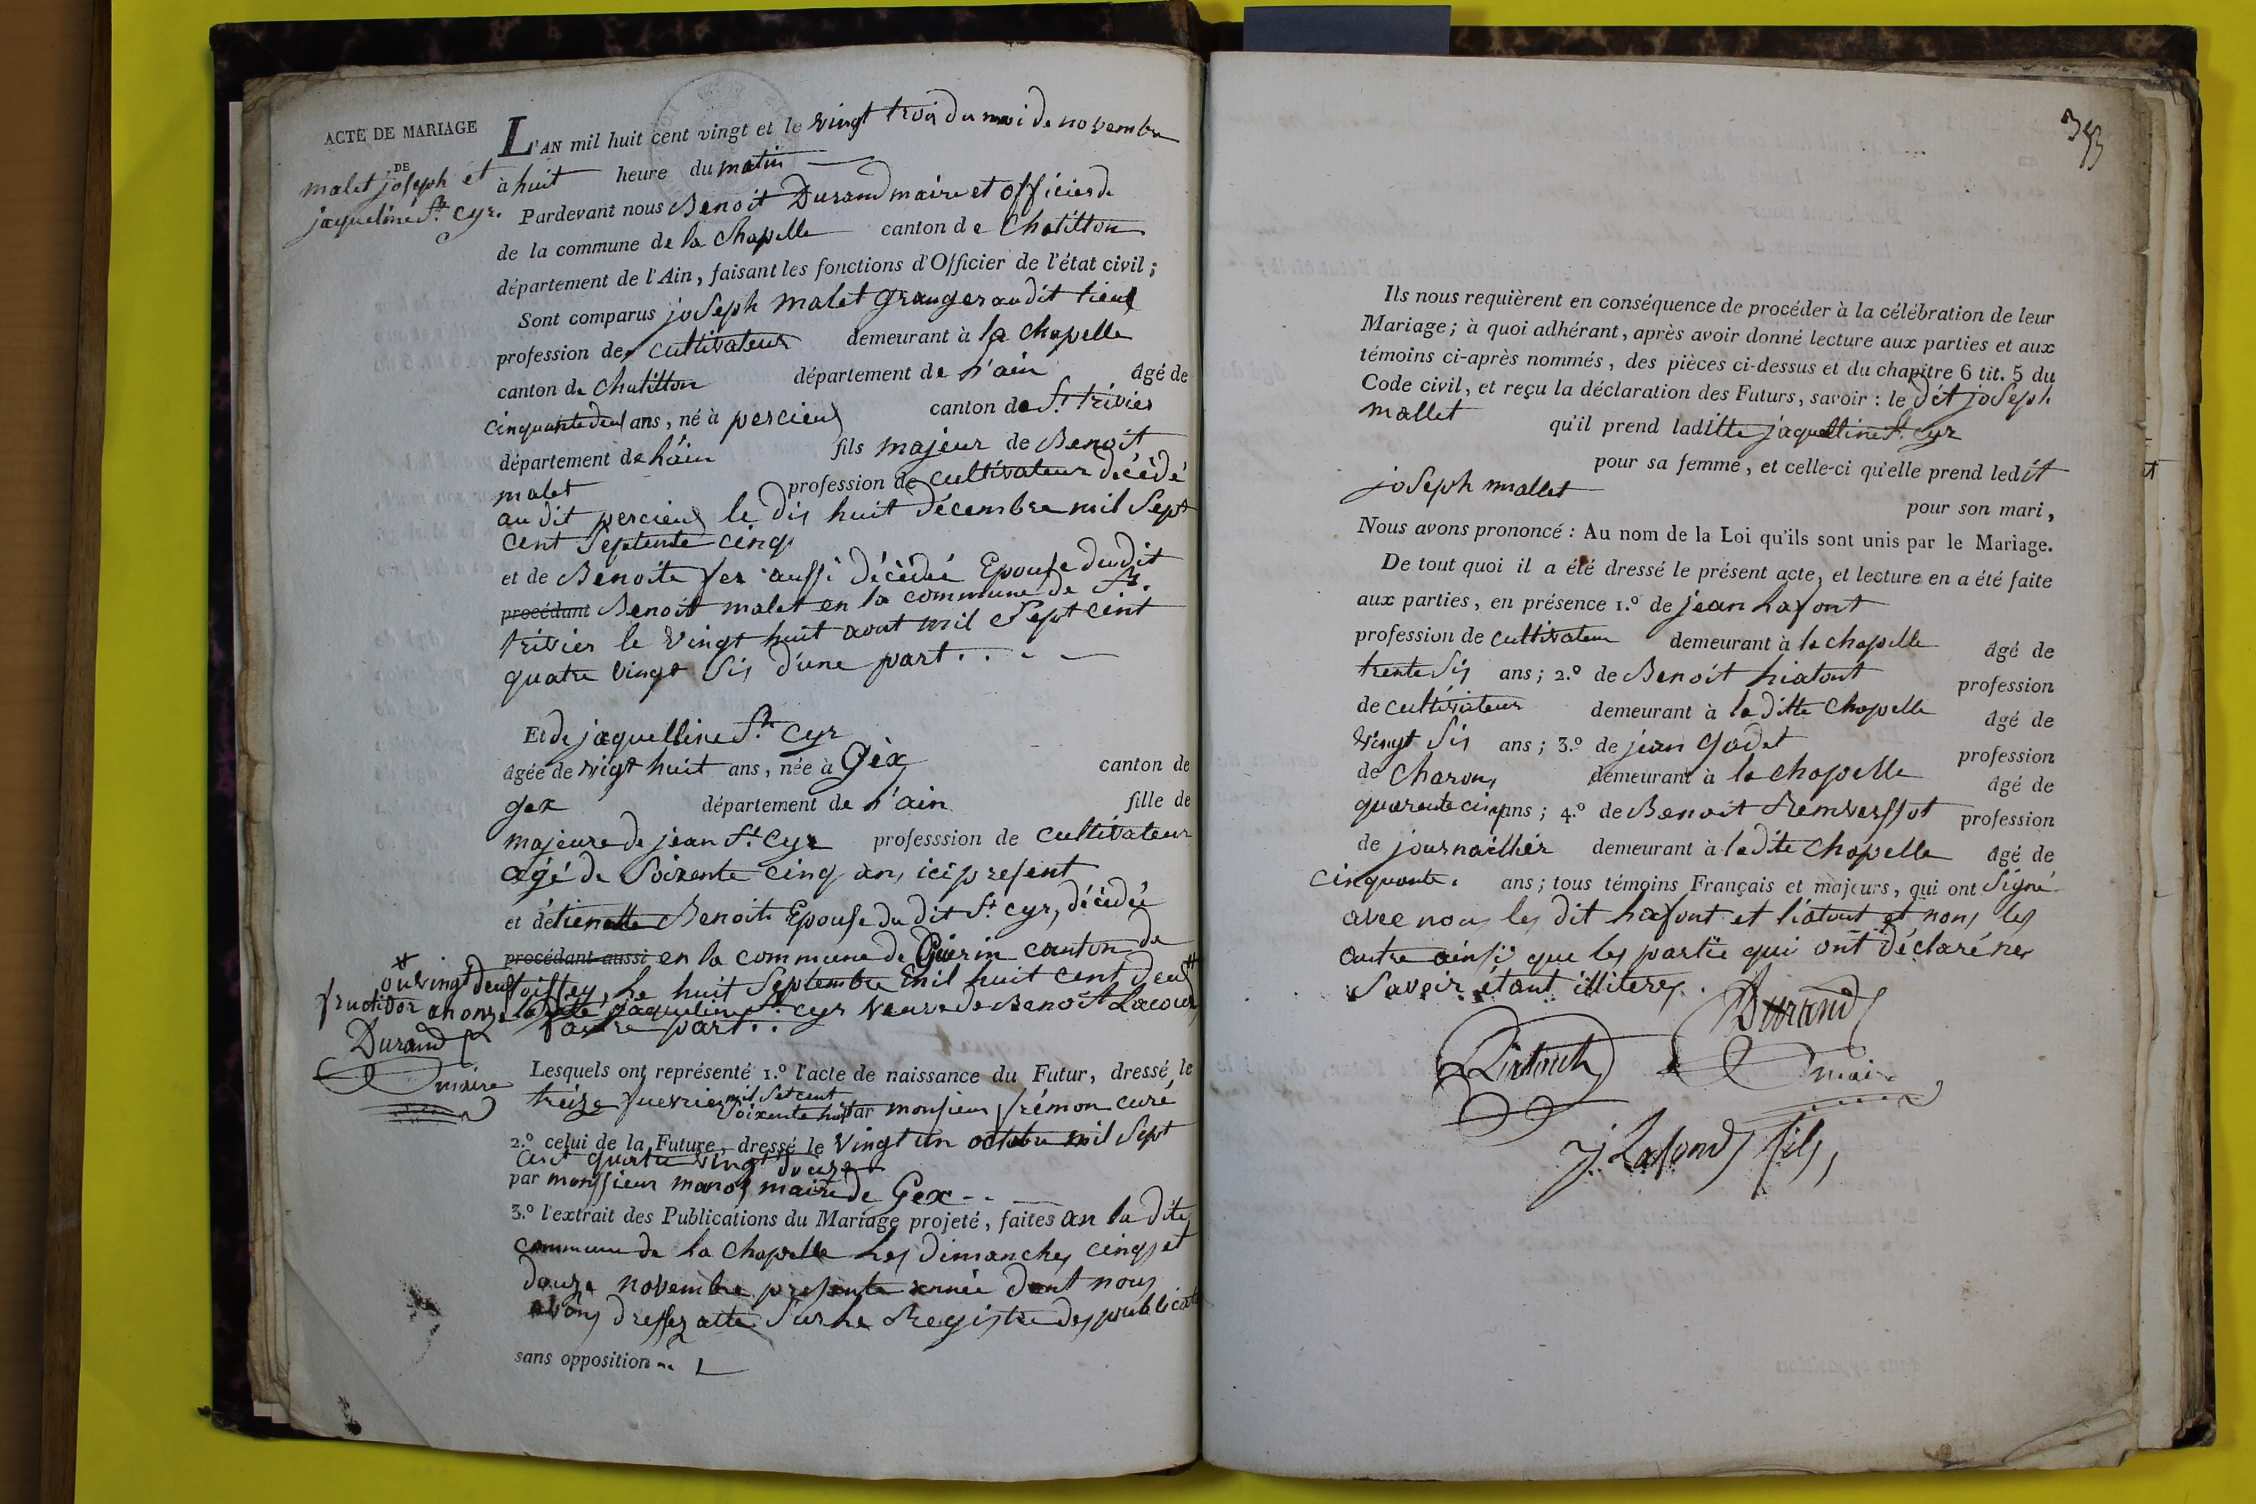 ACTE DE MARIAGE
DE
malet joseph et
jaqueline St. Cyr.
L'AN mil huit cent vingt et le vingt trois du moi de novembre
à huit heure du matin
Pardevant nous Benoit Durand maire et officier de
de la commune de la Chapelle canton de Chatillon
département de l'Ain, faisant les fonctions d'Officier de l'état civil ;
Sont comparus joseph malet granger audit lieu
profession de cultivateur demeurant à la chapelle
canton de chatillon département de l'ain âgé de
cinquante deux ans, né à percieux canton de St. trivier
département de l'ain fils majeur de Benoit
malet profession de cultivateur décédé
au dit percieux le dix huit décembre mil Sept
cent Septente cinq
et de Benoite fer aussi décédée Epouse dudit
procédant Benoit malet en la commune de St.
trivier le vingt huit aout mil Sept cent
quatre vingt Six d'une part
Et de jaquelline St. Cyr
âgée de vigt huit ans, née à Gex canton de
gex département de l'ain fille de
majeure de jean St. Cyr professsion de cultivateur
agé de Soixente cinq ans ici present
et détienette Benoite Epouse du dit St. cyr, décédée
procédant aussi en la commune de Guerin canton de
toissey, le huit Septembre mil huit cent deux
la ditte jaqueline St. cyr veuve de Benoit Lacour
d'autre part
ou vingt deux
fructidor an onze
Durand
maire
Lesquels ont représenté 1.º l'acte de naissance du Futur, dressé le
treize fuevrier mil Set cent
Soixente huit par monsieur frémon curé
2.º celui de la Future, dressé le vingt un octobre mil Sept
cent quatre vingt douze
par monssieur manos maire de Gex
3.º l'extrait des Publications du Mariage projeté, faites an la dite
commune de la chapelle les dimanches cinq et
douze novembre presente année dont nous
avons dressez atte Sur le Registre des publicat
sans opposition
353
Ils nous requièrent en conséquence de procéder à la célébration de leur
Mariage; à quoi adhérant, après avoir donné lecture aux parties et aux
témoins ci-après nommés, des pièces ci-dessus et du chapitre 6 tit. 5 du
Code civil, et reçu la déclaration des Futurs, savoir : le dit joseph
mallet qu'il prend laditte jaquelline St. cyr
pour sa femme, et celle-ci qu'elle prend ledit
joseph mallet
pour son mari,
Nous avons prononcé : Au nom de la Loi qu'ils sont unis par le Mariage.
De tout quoi il a été dressé le présent acte, et lecture en a été faite
aux parties, en présence 1.º de jean Lafont
profession de cultivateur demeurant à la chapelle âgé de
trente Six ans; 2.º de Benoit liatout profession
de cultivateur demeurant à la ditte Chapelle âgé de
vingt Six ans; 3.º de jean Godet profession
de charon demeurant à la chapelle âgé de
quarente cinq ans; 4.º de Benoit profession
de journaillier demeurant à la dite chapelle âgé de
cinquante. ans; tous témoins Français et majeurs, qui ont Signé
avec nous les dit Lafont et liatout et nons les
autre ainsi que les partie qui ont déclaré ne
Savoir étant illiteres.
Durand
maire
J. Lafond fils